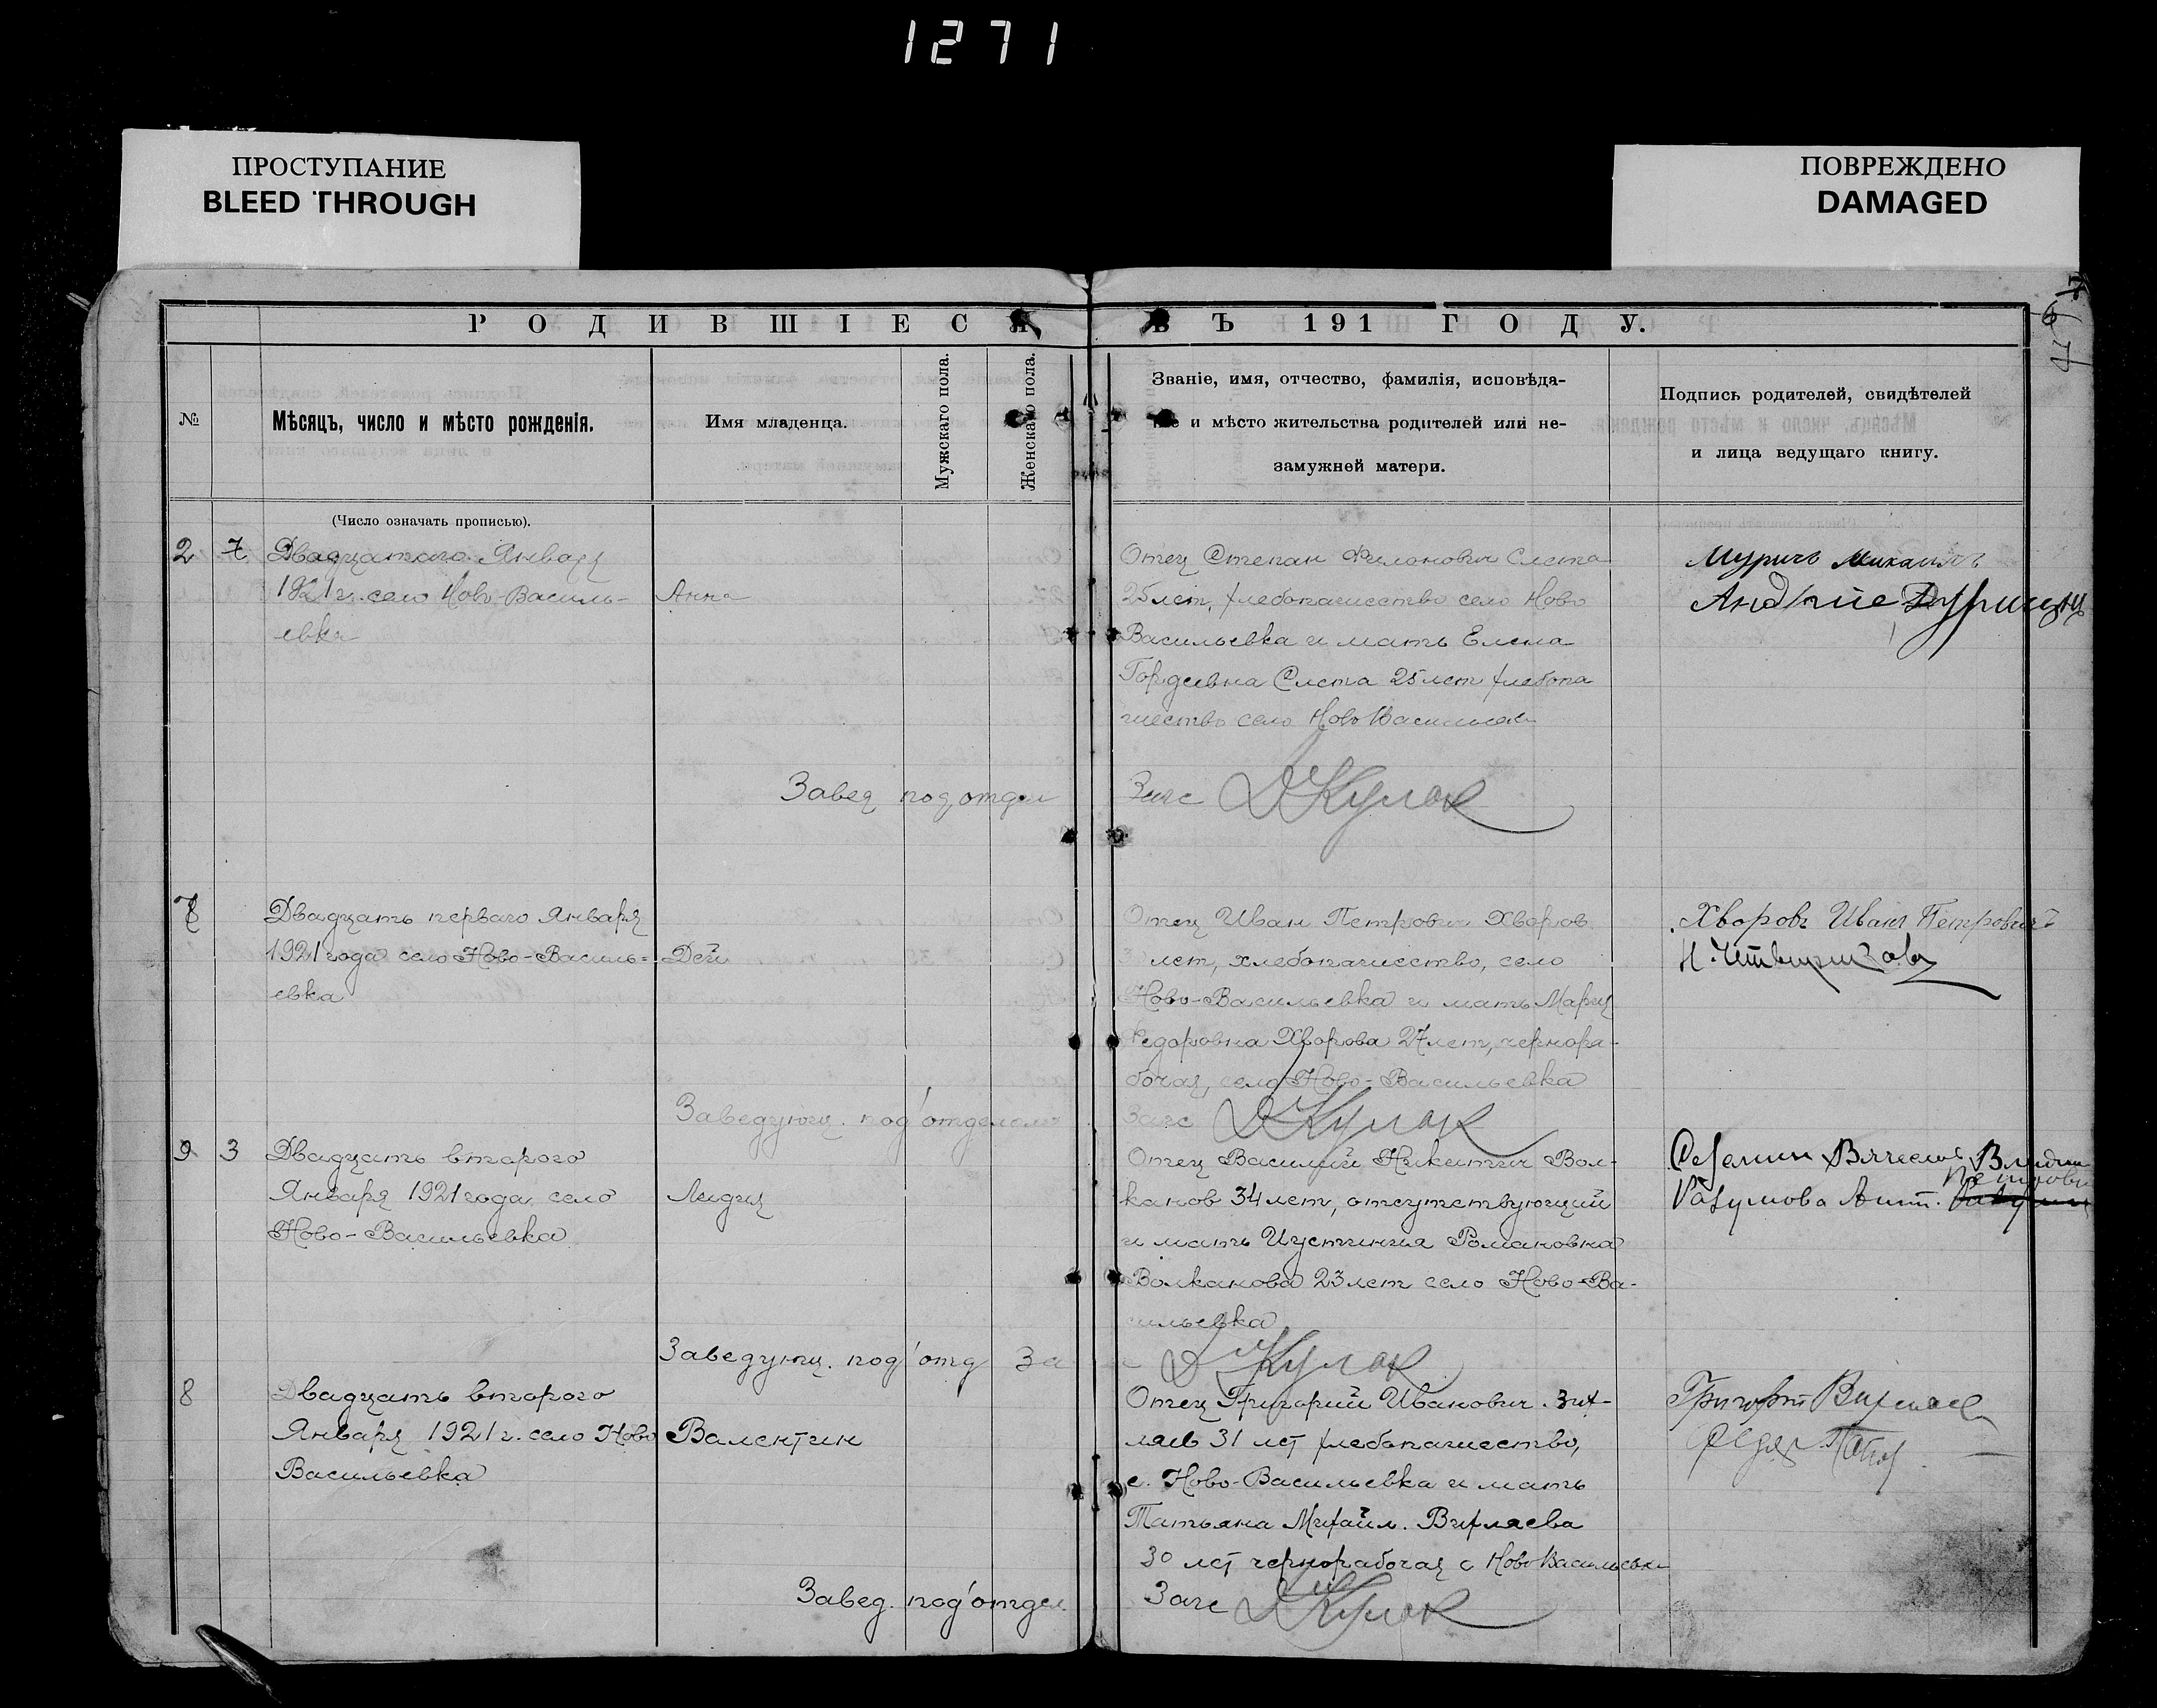 1271
ПРОСТУПАНИЕ
BLEED THROUGH
ПОВРЕЖДЕНО
DAMAGED
РОДИВШІЕСЯ
ВЪ 191 ГОДУ.
№
Мѣсяцъ, число и мѣсто рожденія.
Имя младенца.
Мужскаго пола.
Женскаго пола.
Званіе, имя, отчество, фамилія, исповѣда-
ніе и мѣсто жительства родителей или не-
замужней матери.
Подпись родителей, свидѣтелей
и лица ведущаго книгу.
(Число означать прописью).
2 7 Двадцатого Января
1921 г. село Ново-Василь-
евка
Анна
Отец Степан Слета
25 лет, хлебопашество село Ново
Васильевка и мать Елена
Гордеевна Слета 25 лет хлебопа
шество село Ново Васильевк
Муричъ Михаилъ
Завед под отдел
Загс ДКулак
7
Двадцать перваго Января
1921 года село Ново-Василь-
евка
Дей
Отец Иван Петрович Хворов
лет, хлебопашество, село
Ново-Васильевка и мать Мария
Федоровна Хворова 27 лет, чернора-
бочая, село Ново-Васильевка
Хворовъ Иванъ Петровичъ
Заведующ. под'отделом
Загс ДКулак
9 3 Двадцать второго
Января 1921 года, село
Ново-Васильевка
Лидия
Отец Василий Никитич Вол-
канов 34 лет, отсутствующий
и мать Иустиния Романовна
Волканова 23 лет село Ново-Ва-
сильевка
Разумова Ант.
Петровн
Заведующ. под'отд За
ДКулак
8
Двадцать второго
Января 1921 г. село Ново
Васильевка
Валентин
Отец Григорий Иванович
ляев 31 лет хлебопашество,
с. Ново-Васильевка и мать
Татьяна Михайл. Вихляева
30 лет чернорабочая с Ново Васильевка
Завед. под'отдел
Загс ДКулак